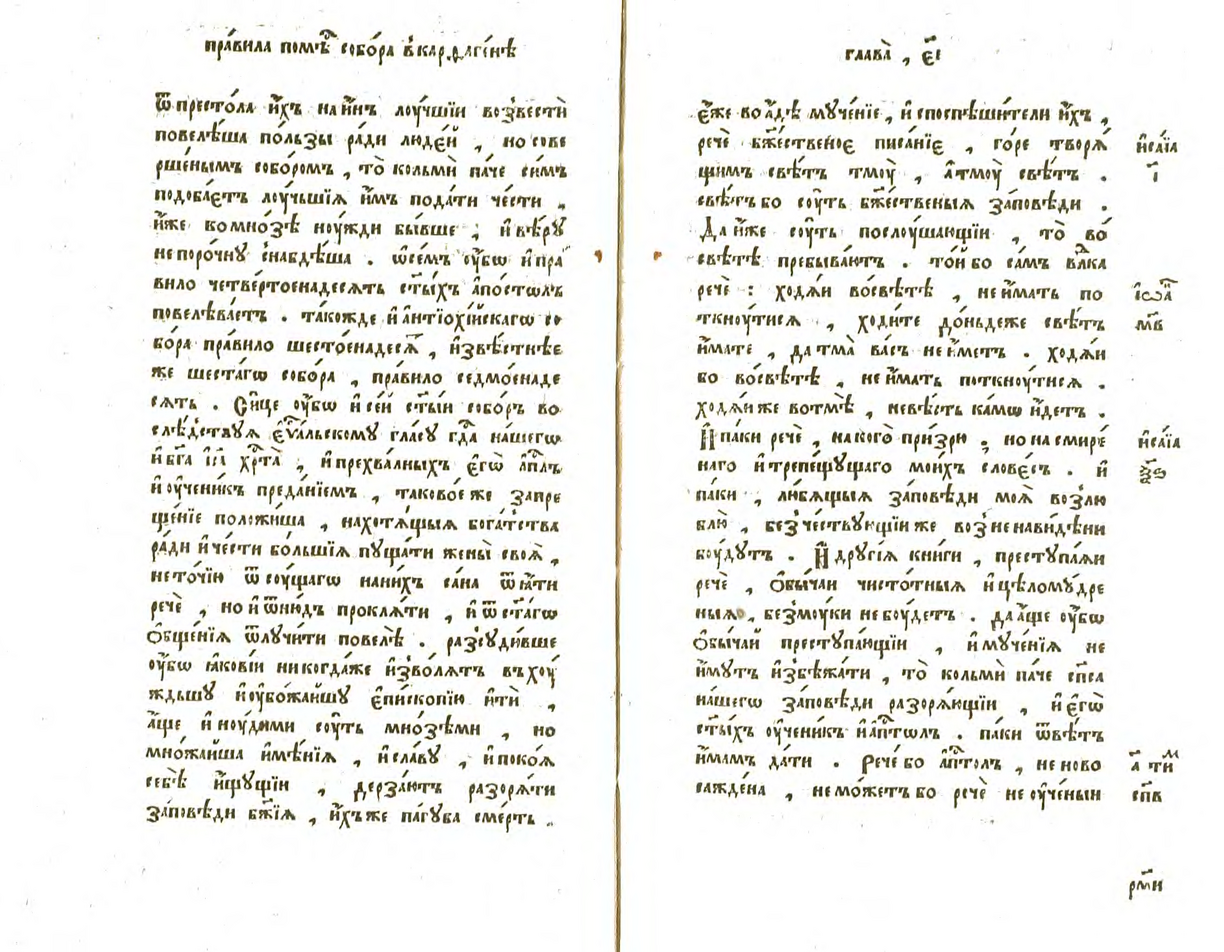 пра́вила помѣ́ст собо́ра в҆кар,ѳаге́нѣ
ѿпресто́ла и҆́хъ наи҆́нъ лоу́чшїи возвестѝ
повелѣ́ша по́льзы ра́ди люде́й , но сове
рше́нымъ собо́ромъ , то̀ кольмѝ па́че си́мъ
подоба́етъ лоу́чьшїѧ и҆́мъ пода́ти че́сти ,
и҆́же вомно́зѣ ноу́жди бы́вше , и҆ вѣ́рꙋ
непоро́чнꙋ снабдѣ́ша . ѡ҆се́мъ оу҆́бѡ и҆ пра
вило четве́ртоенадесѧть ст҃ы́хъ а҆по́столъ
повелѣва́етъ . та́кожде и҆ а҆нтїохі́йскагѡ со
бо́ра пра́вило шесто́енадесѧ , и҆звѣ́стнѣе
же шеста́гѡ собо́ра , пра́вило седмо́енаде
сѧть . Си́це оу҆́бѡ и҆ се́й ст҃ы́и собо́ръ во
слѣ́дствꙋѧ є҆ѵⷢ҇а́льскомꙋ гла́сꙋ гд҇а на́шегѡ
и҆ бг҃а і҆с҃а хрⷭ҇та̀ , и҆ прехва́лныхъ є҆гѡ̀ а҆пл҃ъ
и҆ оу҆чени́къ преда́нїемъ , таково́е же запре
ще́нїе положи́ша , нахотѧ́щыѧ бога́тства
ра́ди и҆ че́сти бо́льшїѧ пꙋща́ти жены̀ своѧ̀ ,
нето́чїю ѿ соу́щагѡ нани́хъ са́на ѿѧ́ти
речѐ , но и҆ ѿню́дъ проклѧ́ти , и҆ ѿ ст҃а́гѡ
ѻ҆бще́нїѧ ѿлꙋчи́ти повелѣ̀ . разсꙋди́вше
оу҆́бѡ ꙗ҆ковíи никогда́же и҆зво́лѧтъ въ хоу́
ждьшꙋ и҆ оу҆бо́жайшꙋ є҆пископїю и҆тѝ ,
а҆́ще и҆ ноу́дими соу́ть мно́зѣми , но
мно́жайша и҆мѣ́нїѧ , и҆ сла́вꙋ , и҆ поко́ѧ
себѣ̀ и҆́щꙋщїи , дерза́ютъ разорѧ́ти
за́повѣди бж҃їѧ , и҆́хъже па́гꙋба сме́рть .
глава̀ , є҃і
є҆́же во а҆́дѣ мꙋче́нїе , и҆ споспѣши́тели и҆́хъ ,
речѐ бж҃е́ственое писа́нїе , го́ре творѧ́
щимъ свѣ́тъ тмоу̀ , а҆ тмоу̀ свѣ́тъ .
свѣ́тъ бо соу́ть бж҃е́ственыѧ за́повѣди .
Да и҆́же соу́ть послоу́шающїи , то̀ во
свѣ́тѣ пребыва́ютъ . то́й бо са́мъ влⷣка
речѐ : ходѧ́и восвѣ́тѣ , неи҆́мать по
ткноу́тисѧ , ходи́те до́ньдеже свѣ́тъ
и҆́мате , да тма̀ ва́съ неи҆́метъ . ходѧ́и
бо восвѣ́тѣ , неи҆́мать поткноу́тисѧ .
ходѧ́и же вотмѣ̀ , невѣ́сть ка́мѡ и҆́детъ .
И҆ па́ки речѐ , на кого̀ при́зрю , но на смире́
наго и҆ трепе́щꙋщаго мои́хъ слове́съ . и҆
па́ки , лю́бѧщыѧ за́повѣди моѧ̀ возлю
блю̀ , безче́ствꙋющїи же возненави́дѣни
боу́дꙋтъ . И҆ дрꙋгі́ѧ кни́ги , престꙋпа́ѧи
речѐ , ѻ҆бы́чаи чисто́тныѧ и҆ цѣломꙋ́дре
ныѧ , безмоу́ки небоу́детъ . да а҆́ще оу҆́бѡ
ѻ҆бы́чай престꙋпа́ющїи , и҆ мꙋче́нїѧ не
и҆́мꙋтъ и҆збѣ́жати , то̀ кольмѝ па́че сп҃са
на́шегѡ за́повѣди разорѧ́ющїи , и҆ є҆гѡ̀
ст҃ы́хъ оу҆чени́къ и҆ а҆пⷭ҇толъ . па́ки ѿвѣ́тъ
и҆́мамъ да́ти . Рече́ бо а҆пⷭ҇толъ , не ново
сажде́на , немо́жетъ бо речѐ не оу҆че́ныи
и҆са́їа
і҃
і҆ѡа҃
м҃в
и҆са́їа
ѯ҃ѕ
а҃ тим
сп҃в
рм҃и